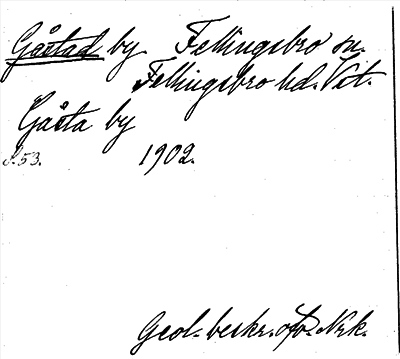 Gåstad by Fellingsbro sn.
Fellingsbro hd. Vst.
Gåsta by
S. 53. 1902.
Geol. beskr. ofv. Nrk.